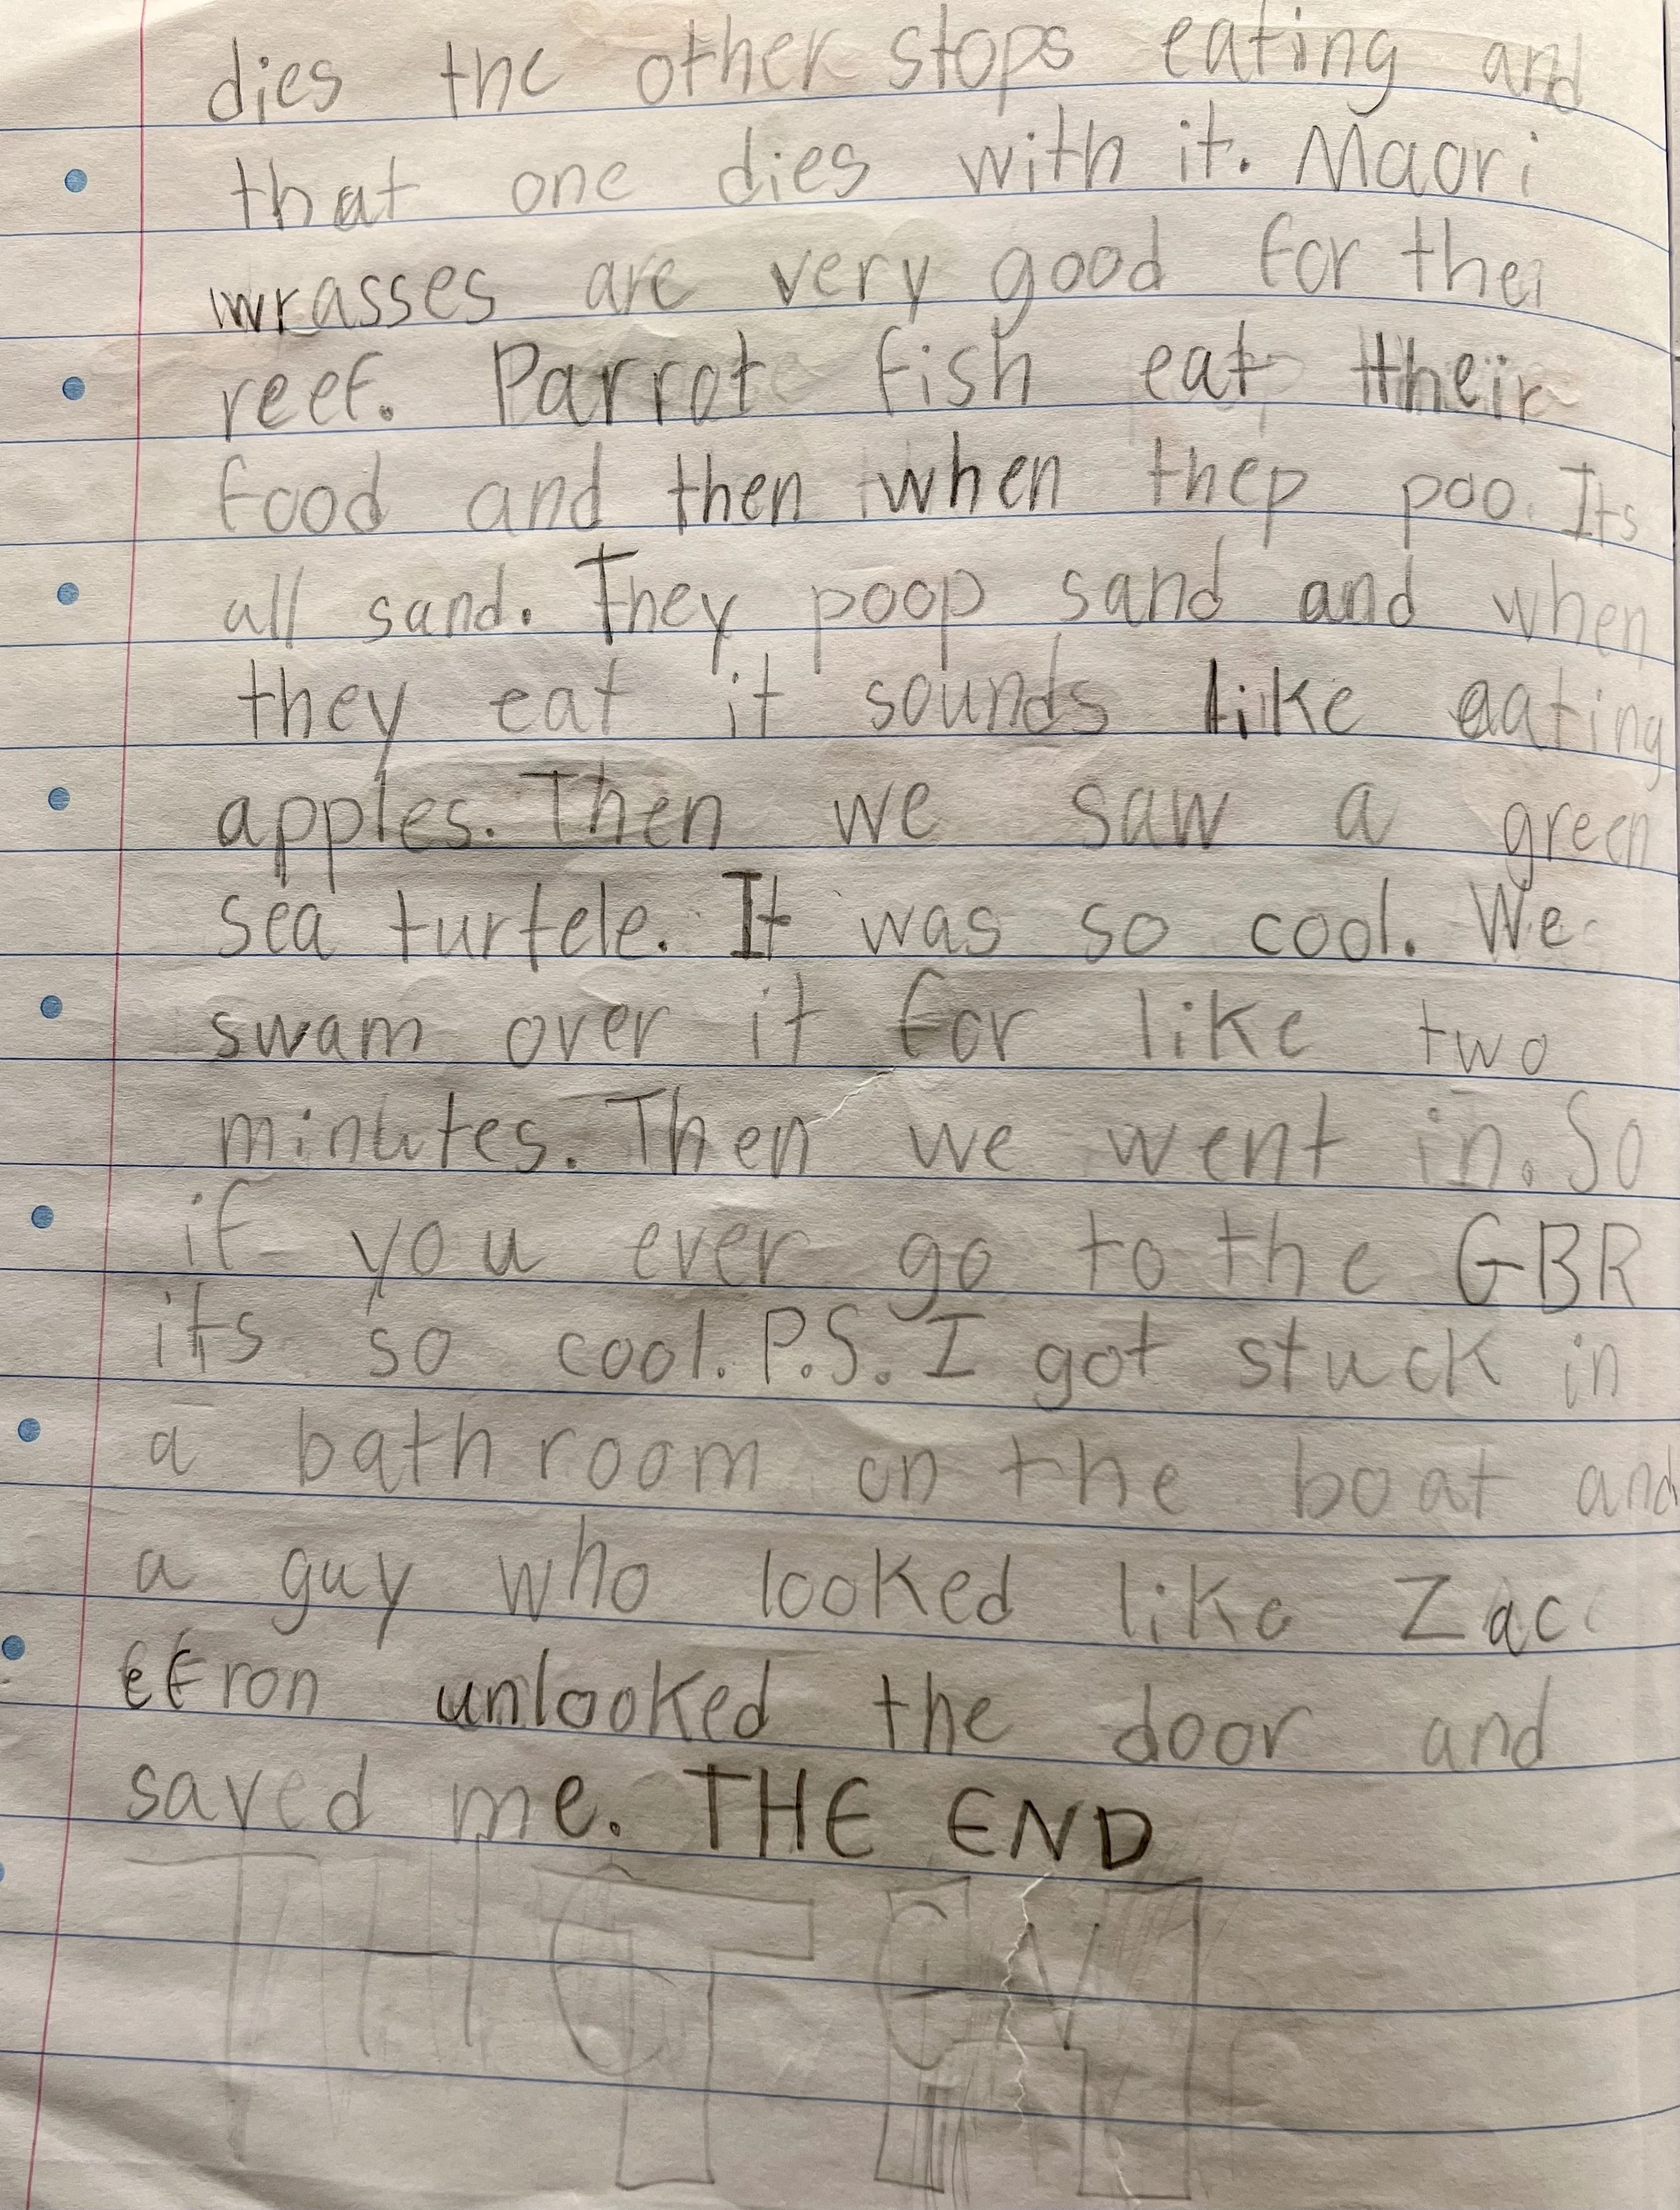 dies the other stops eating and
that one dies with it. Maori
wrasses are very good for thei
reef. Parrot fish eat their
food and then when thep poo. Its
all sand. They poop sand and when
they eat it sounds like eating
apples. Then we saw a green
sea turtele. It was so cool. We
swam over it for like two
minutes. Then we went in. So
if you ever go to the GBR
its so cool. P.S. I got stuck in
a bathroom on the boat and
a guy who looked like Zac
efron unlooked the door and
saved me. THE END